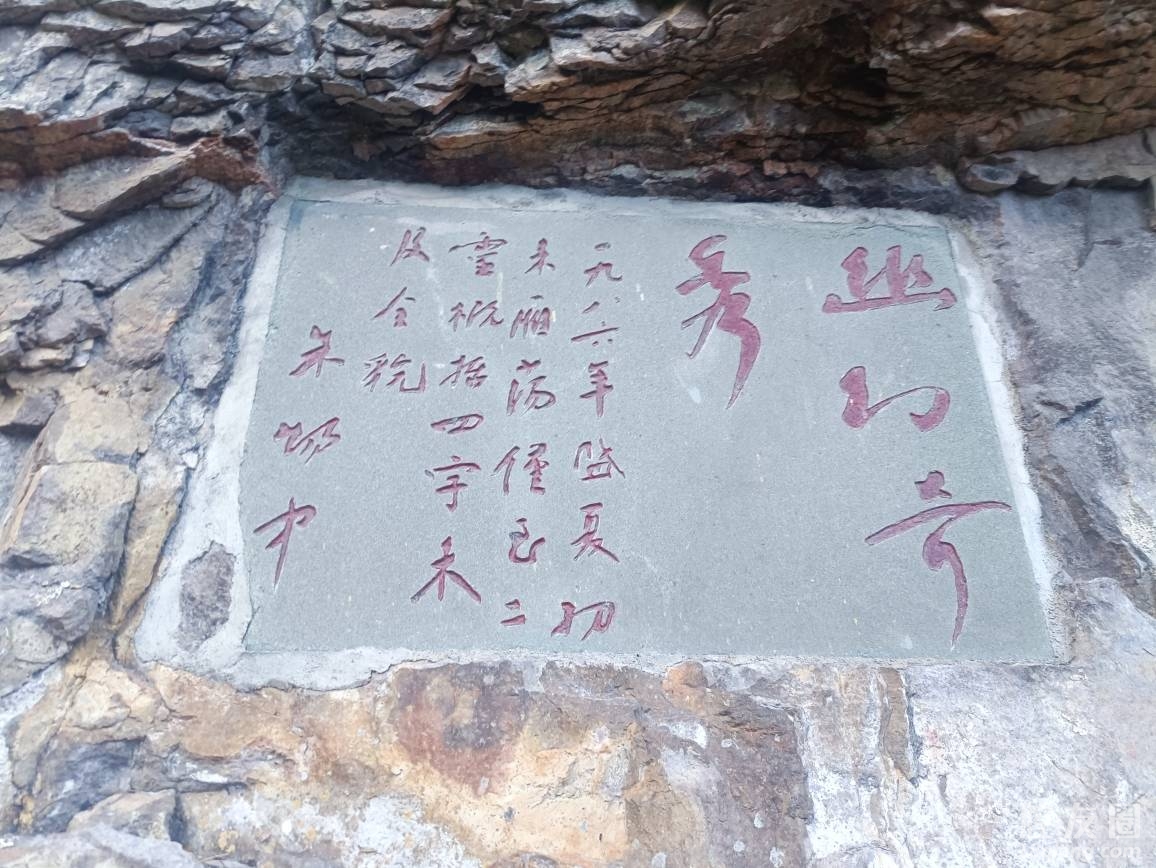 幽幻奇
秀
一九八六年盛夏初
来雁荡僅至二
霊概括四字未
及全貌
朱畅中